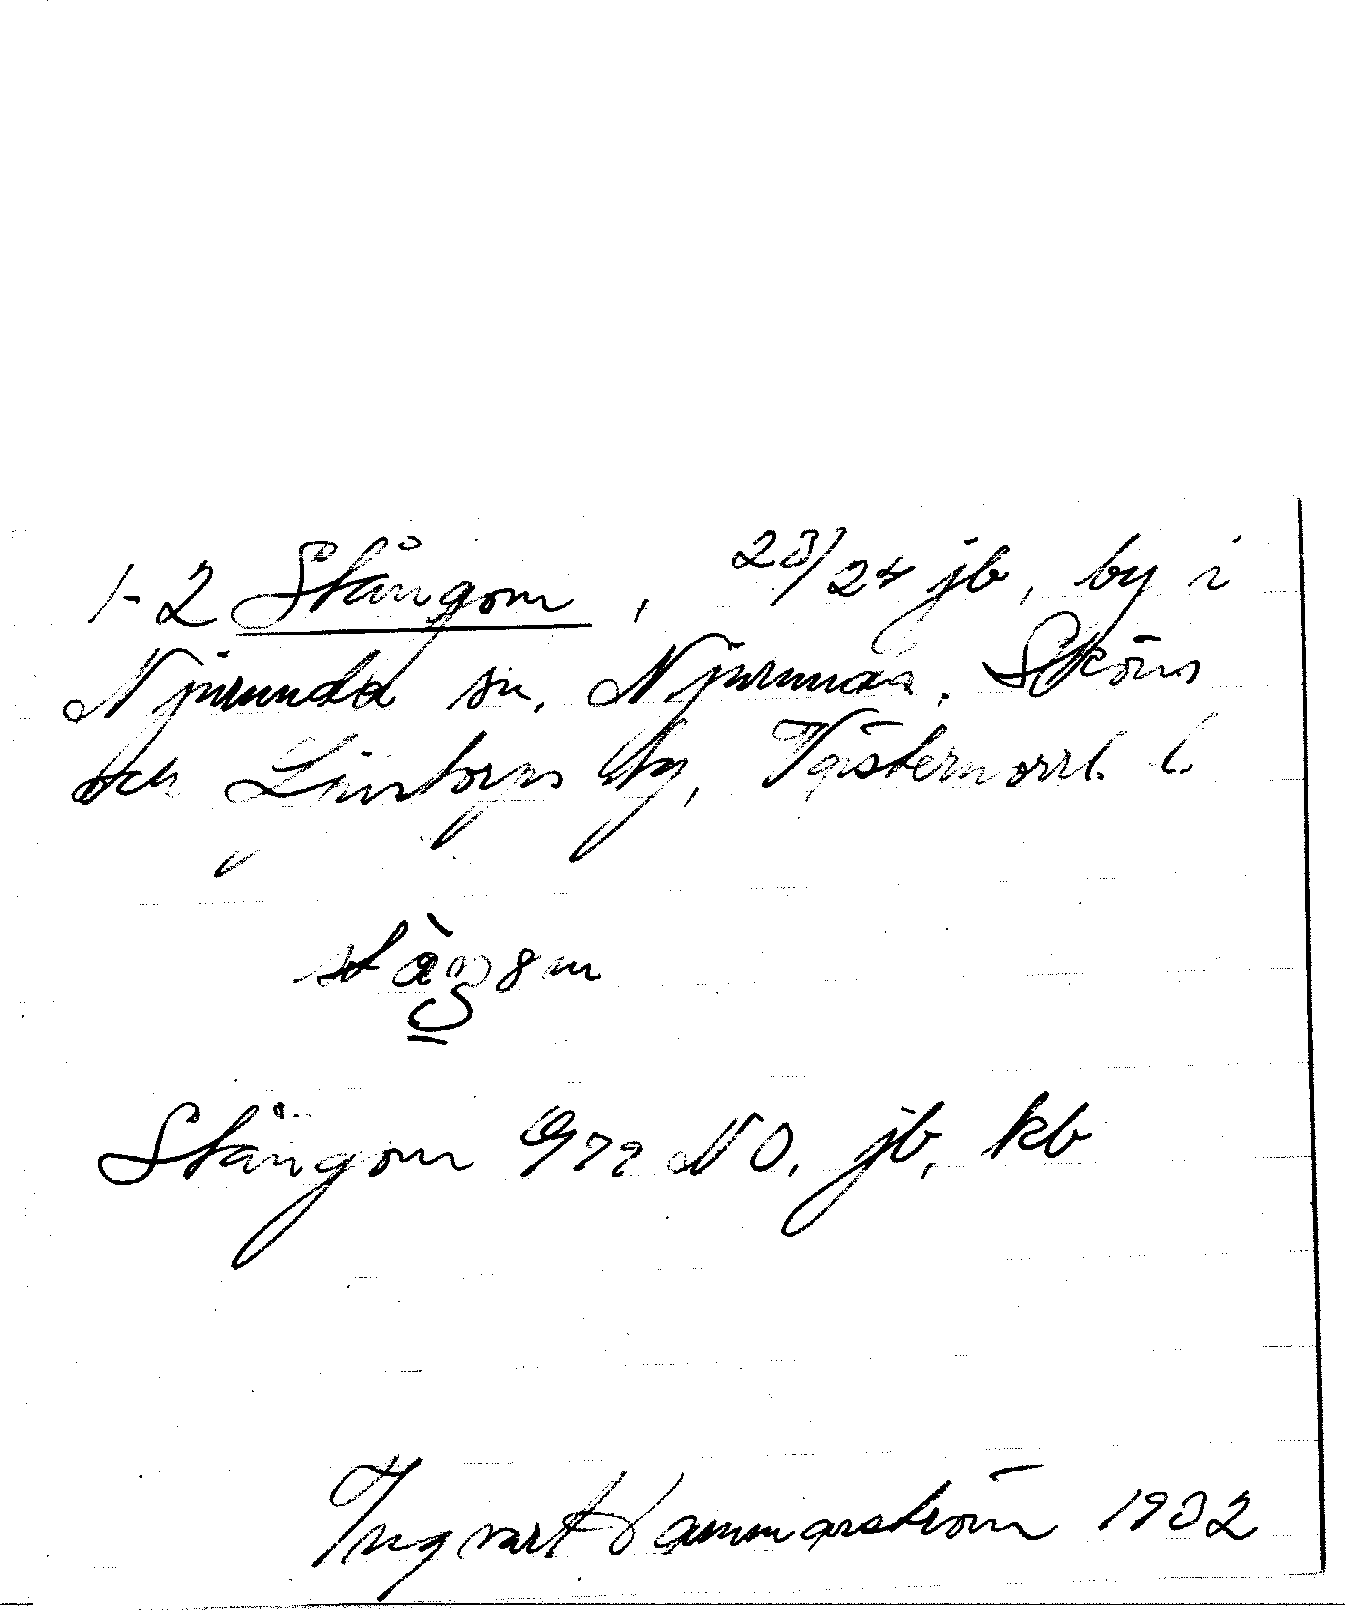 1-2 Stångom, 23/24 jb, by i
Njurunda sn, Njurunda, Sköns
och Ljustorps tg, Västernorrl. l.
Stångom G72 NO, jb, kb
Ingvart Hammarström 1932